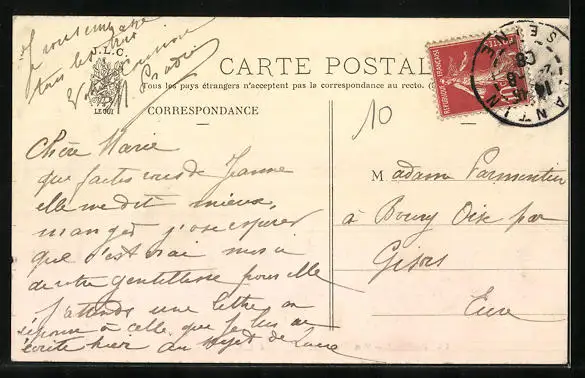 Je vous embrasse
tous les trois
J.L.C.
LE GUI
CARTE POSTALE
Tous les pays étrangers n'acceptent pas la correspondance au recto. (
CORRESPONDANCE
PANTIN
SEINE
REPUBLIQUE FRANÇAISE
POSTES
10
10
Chère Marie
que faites vous de Jeanne
elle me dit mieux
manger j'ose espérer
que c'est vrai merci
de votre gentillesse pour elle
J'attends une lettre en
réponse à celle que je lui ai
écrite hier au sujet de
M adame Parmentier
à Boury Oise par
Gisors
Eure